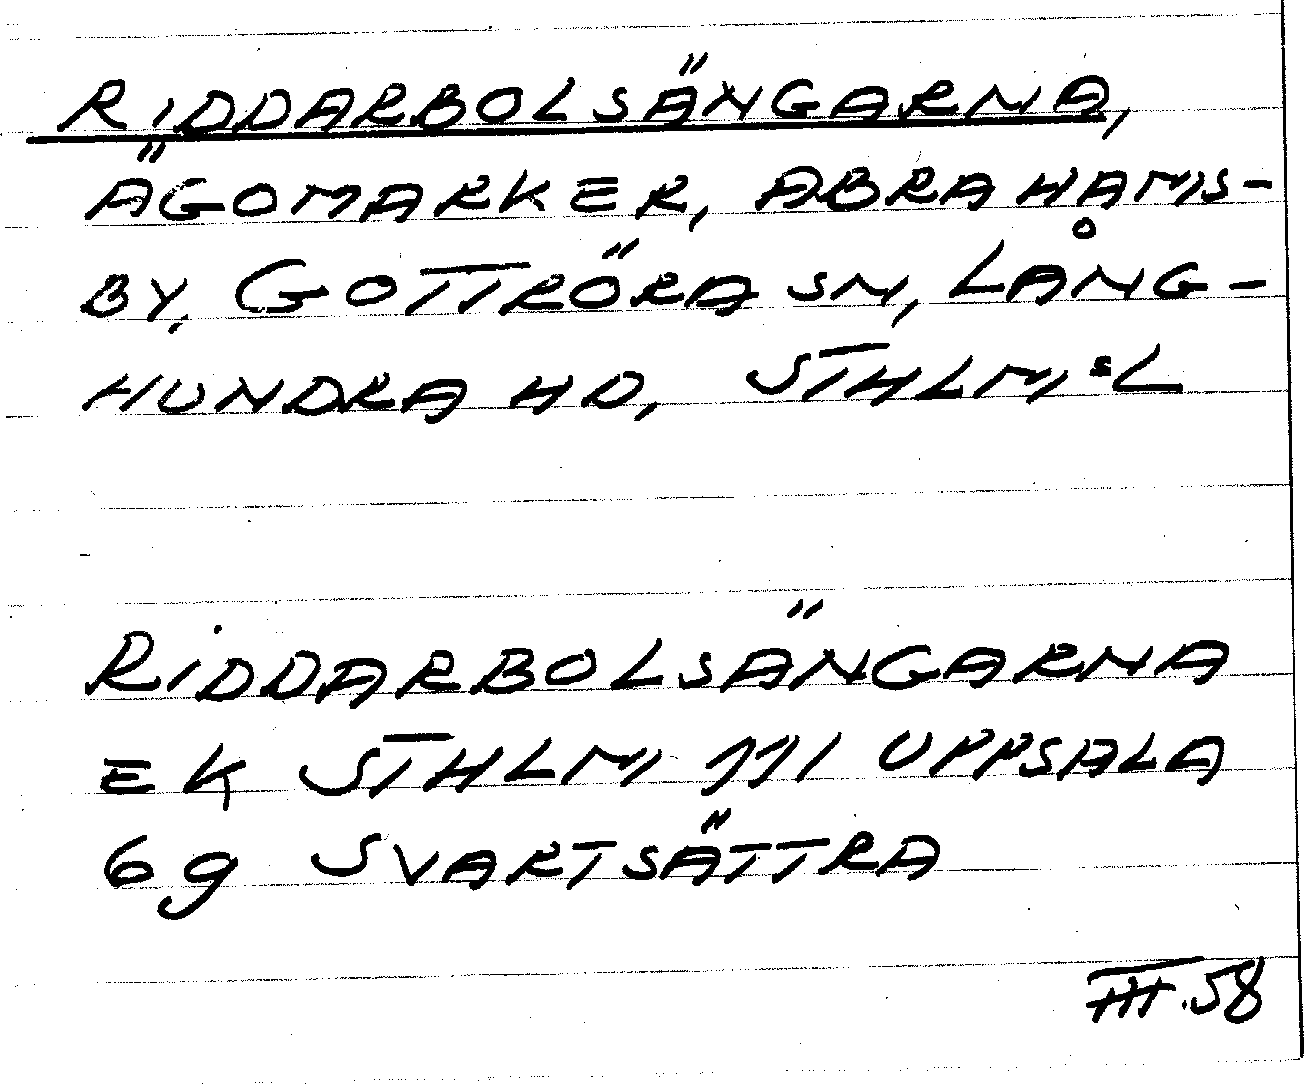 RIDDARBOLSÄNGARNA,
ÄGOMARKER, ABRAHAMS-
BY, GOTTRÖRA SN, LÅNG-
HUNDRA HD, STHLM:S L
RIDDARBOLSÄNGARNA
EK STHLM 111 UPPSALA
6g SVARTSÄTTRA
III.58